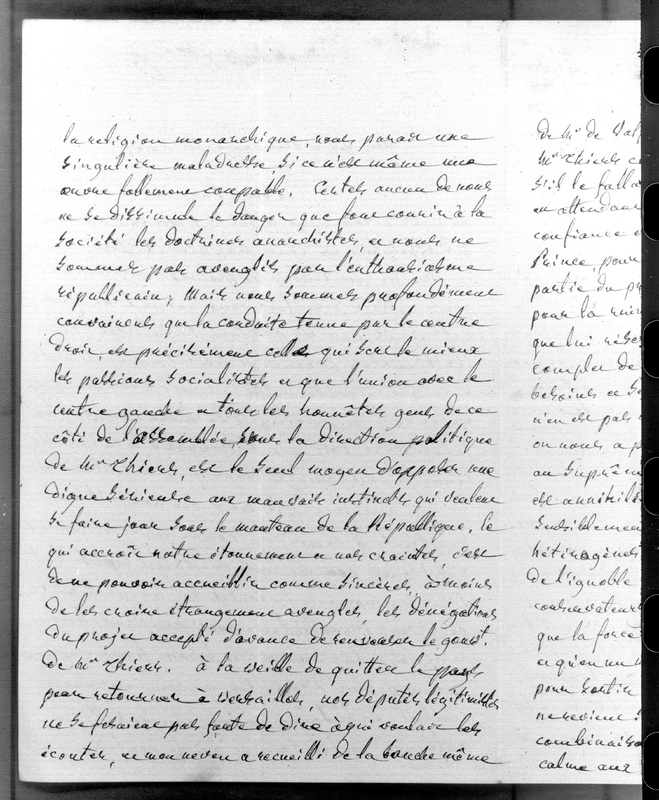 la religion monarchique, nous parait une
singulière maladresse, si ce n'est même une
œuvre follement coupable. Certes aucun de nous
ne se dissimule le danger que font courir à la
société les doctrines anarchistes, et nous ne
sommes pas aveuglés par l'enthousiasme
républicain; Mais nous sommes profondément
convaincus que la conduite tenue par le centre
droit est précisément celle qui sert le mieux
les passions socialistes et que l'union avec le
centre gauche et tous les honnêtes gens de ce
côté de l'assemblée, sous la direction politique
de Mr Thiers, est le seul moyen d'opposer une
digue sérieuse aux mauvais instincts qui veulent
se faire jour sous le manteau de la République. Ce
qui accroît notre étonnement et nos craintes, c'est
de ne pouvoir accueillir comme sincères, à moins
de les croire étrangement aveugles, les dénégations
du projet accepté d'avance de renverser le gouvt.
de Mr Thiers. à la veille de quitter le pays
pour retourner à Versailles, nos députés légitimistes
ne se fesaient pas faute de dire à qui voulait les
écouter, et mon neveu a recueilli de la bouche même
de Mr de
Mr Thiers
s'il le
en attendant
confiance
Prince, pour
partie du
pour la
que lui
compter de
besoins
n'en est pas
on nous a
au suprême
est
sensiblement
hétérogènes
de l'ignoble
conservateurs
que la force
et qu'en un
pour sortir
ne revient
combinaison
calme aux